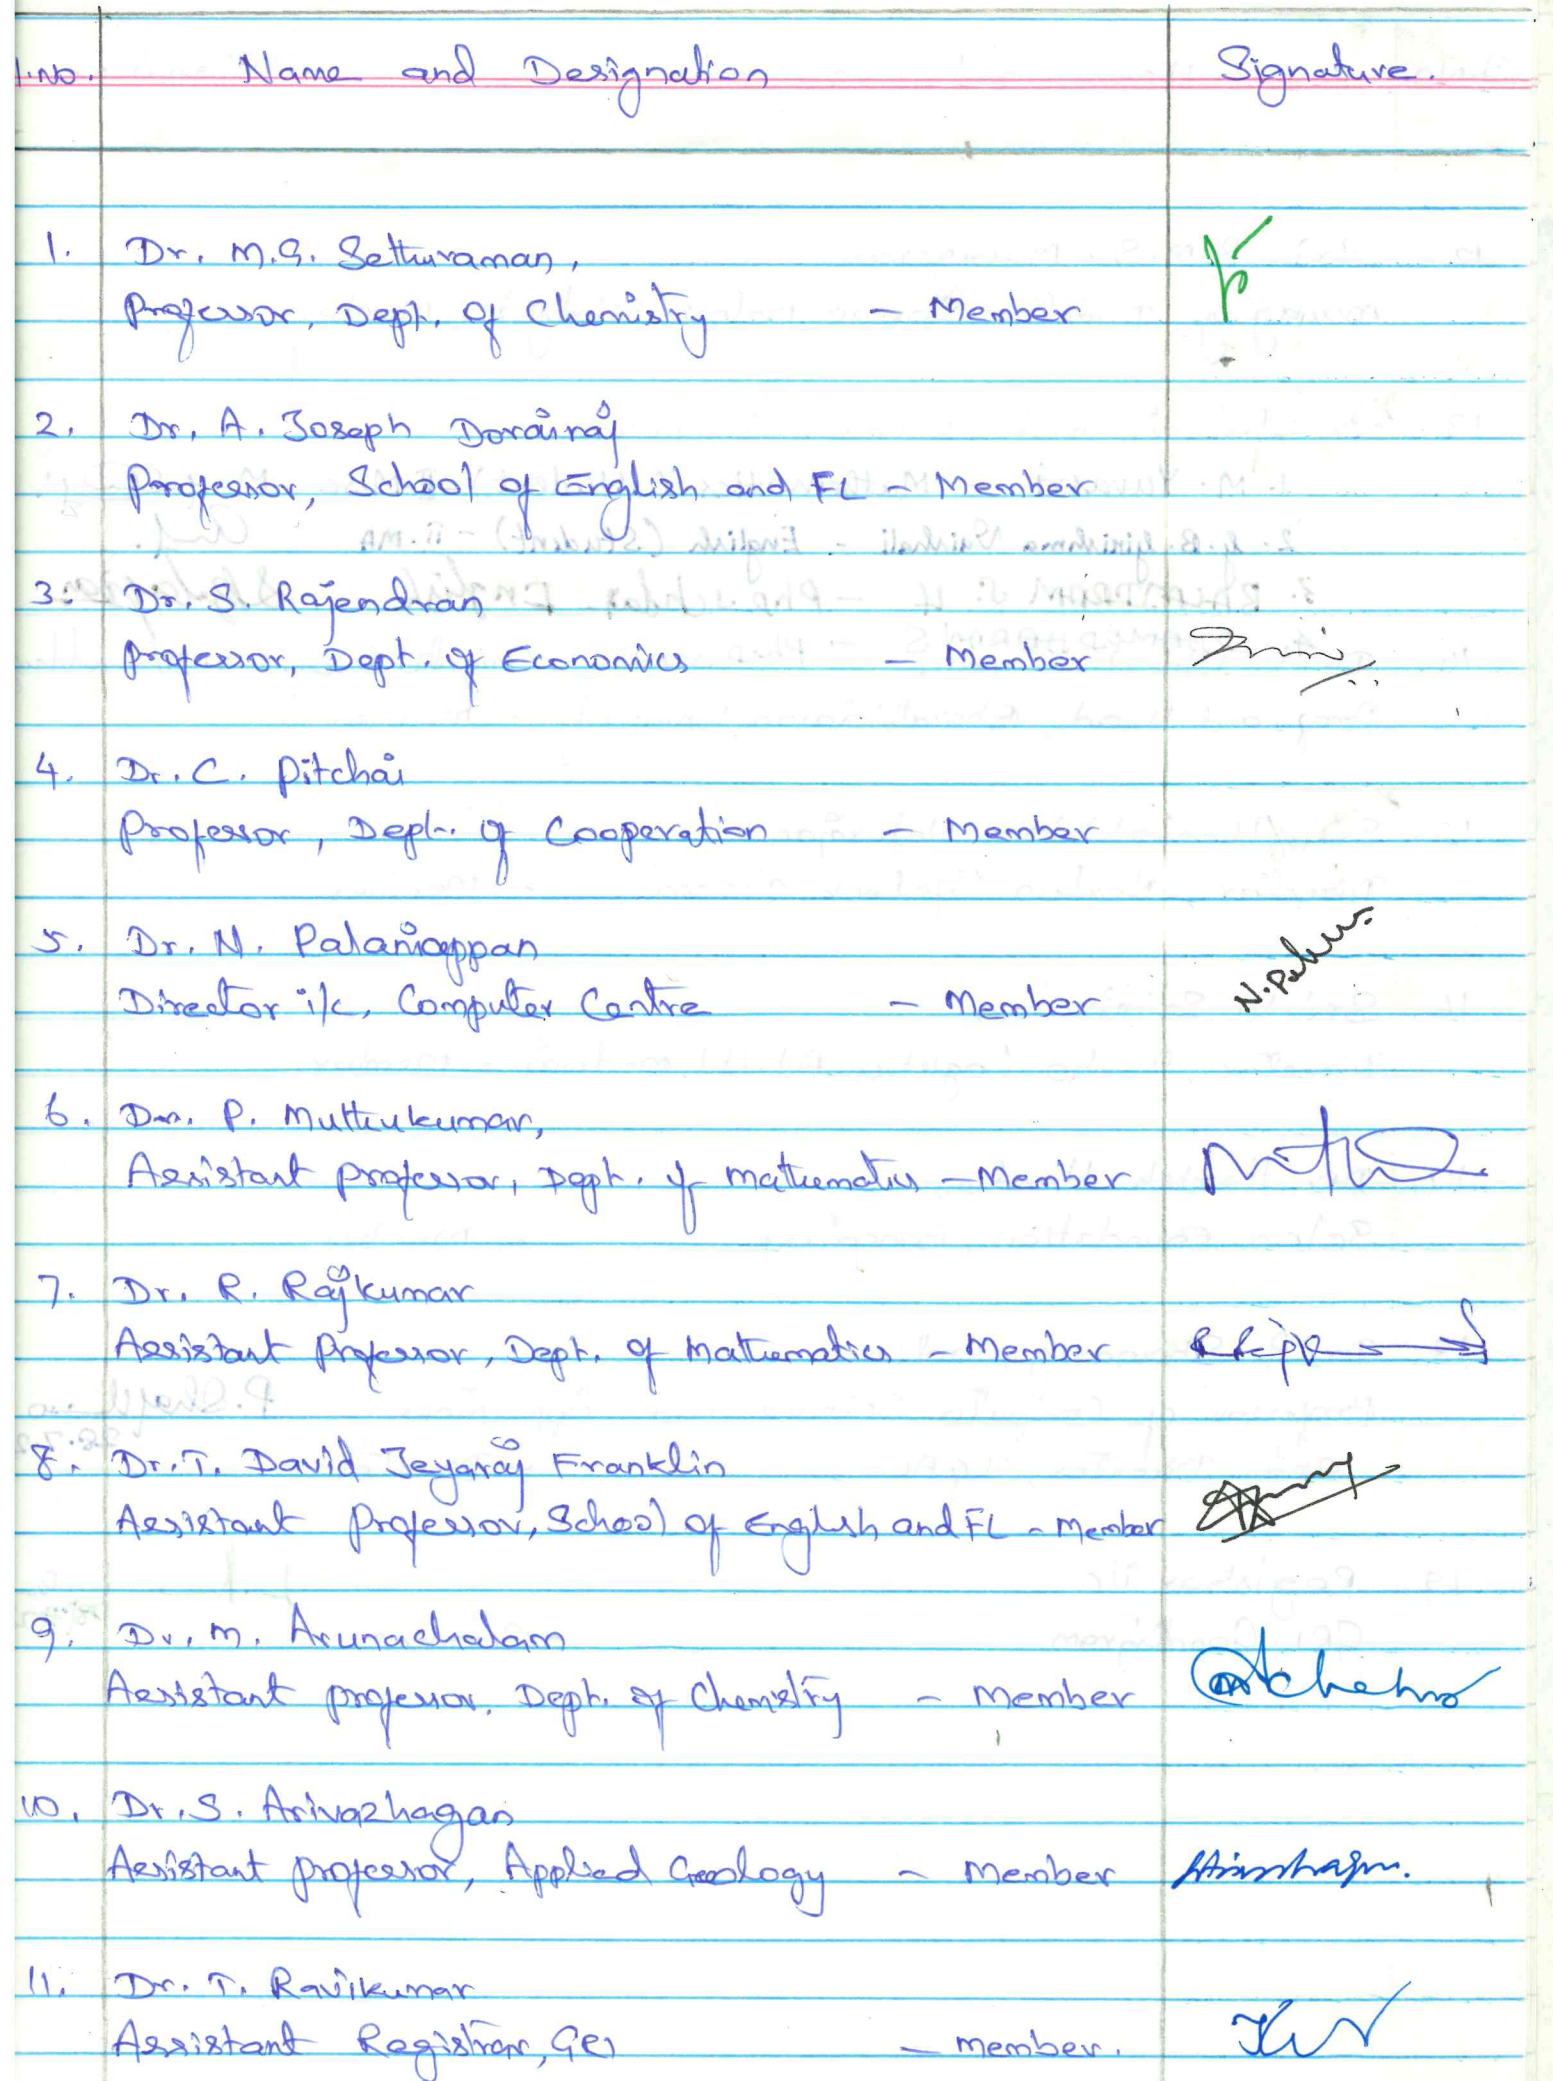 S.No. Name and Designation Signature.
1. Dr. M.G. Sethuraman,
Professor, Dept. of Chemistry - Member
2. Dr. A. Joseph Dorairaj
Professor, School of English and FL - Member
3. Dr. S. Rajendran
Professor, Dept. of Economics - Member
4. Dr. C. Pitchai
Professor, Dept. of Cooperation - Member
5. Dr. N. Palaniappan
Director i/c, Computer Centre - Member
6. Dr. P. Muthukumar,
Assistant Professor, Dept. of Mathematics - Member
7. Dr. R. Rajkumar
Assistant Professor, Dept. of Mathematics - Member
8. Dr. T. David Jeyaraj Franklin
Assistant Professor, School of English and FL - Member
9. Dr. M. Arunachalam
Assistant Professor, Dept. of Chemistry - Member
10. Dr. S. Arivazhagan
Assistant Professor, Applied Geology - Member
11. Dr. T. Ravikumar
Assistant Registrar, GRI - Member.